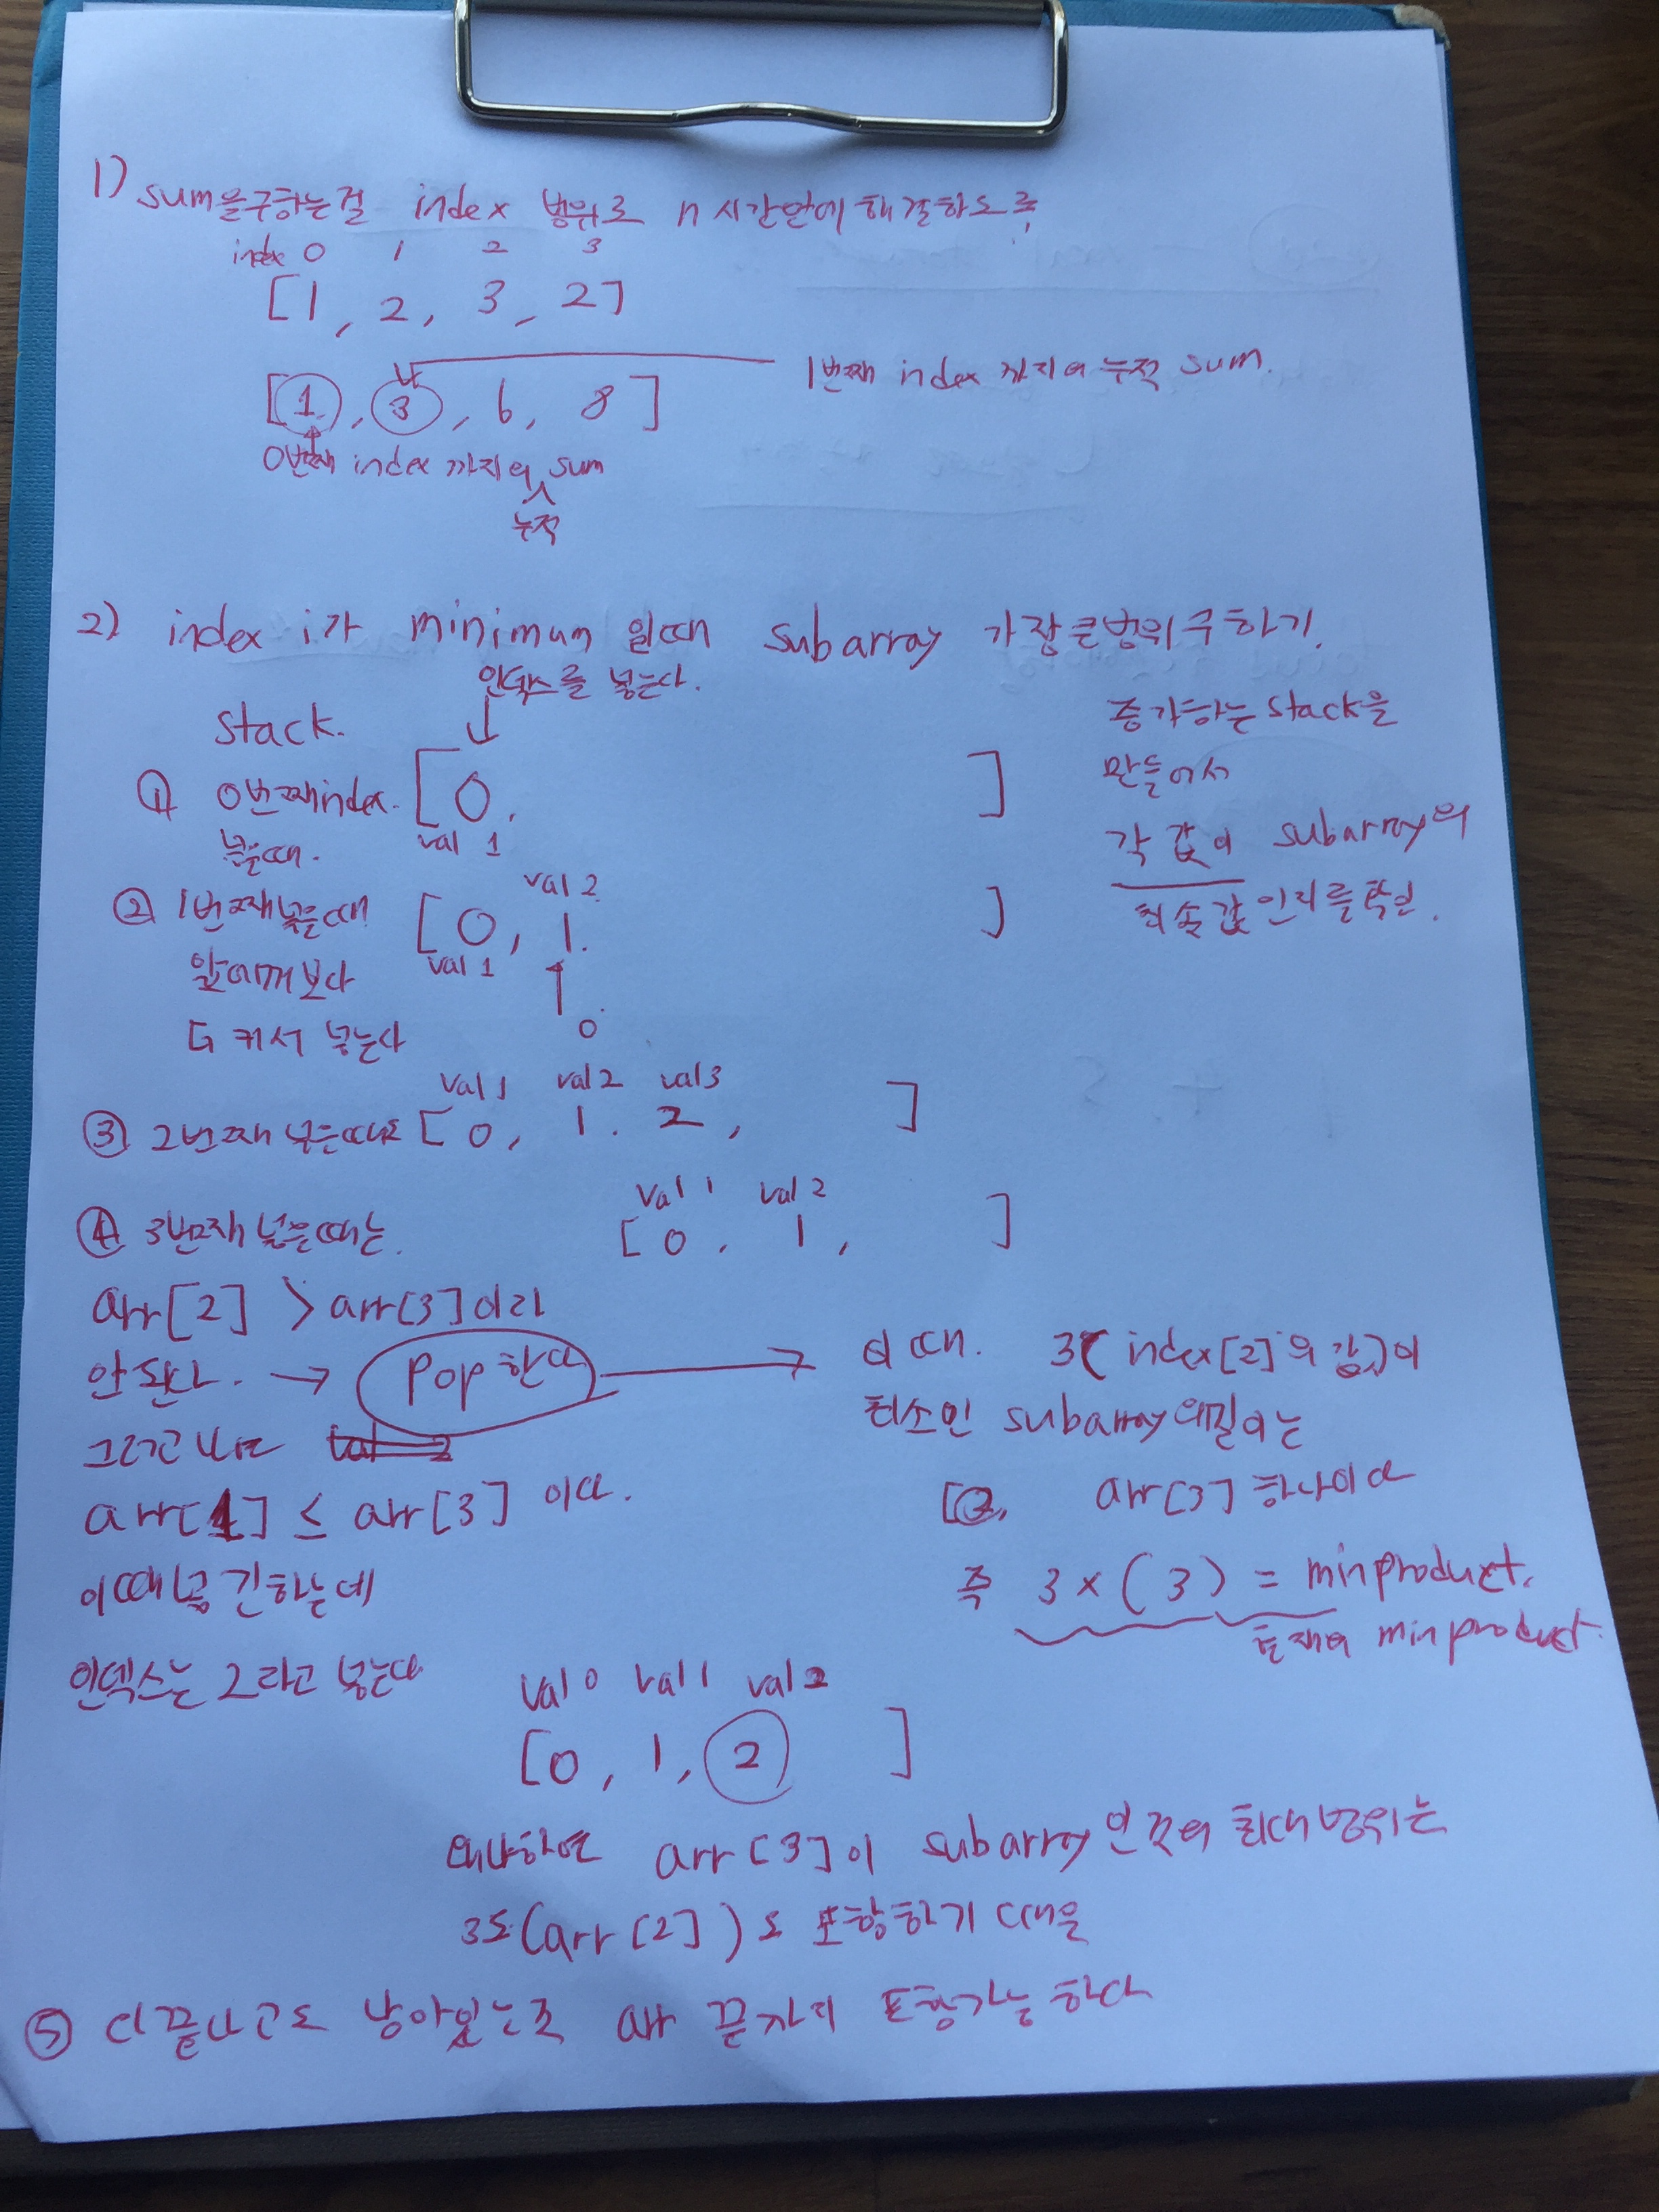 1) sum을구하는걸 index 범위로 n 시간안에 해결하도록
index 0 1 2 3
[1, 2, 3, 2]
1번째 index 까지의 누적 sum.
[1, 3, 6, 8]
0번째 index 까지의 sum
누적
2) index i가 minimum 일때 subarray 가장큰범위구하기.
인덱스를 넣는다.
stack.
증가하는 stack을
만들어서
각 값이 subarray의
최솟값인지를 확인.
① 0번째index. [0, ]
넣을때. val 1
val 2
② 1번째넣을때 [0, 1. ]
val 1
앞에꺼보다
더 커서 넣는다
0
val 1 val 2 val 3
③ 2번째 넣을때도 [0, 1. 2, ]
val 1 val 2
④ 3번째 넣을때는. [0, 1, ]
arr[2] > arr[3]이라
안된다. → pop한다
이때. 3(index[2]의 값)이
최소인 subarray의길이는
arr[3] 하나이다
즉 3 x (3) = minproduct.
현재의 minproduct.
그러고나면
arr[1] ≤ arr[3] 이다.
이때 긴하는데
인덱스는 2라고 넣는다
val 0 val 1 val 2
[0, 1, 2 ]
왜냐하면 arr[3]이 subarray인것의 최대범위는
3도(arr[2])도 포함하기 때문
⑤ 다끝나고도 남아있는곳 arr 끝까지 포함가능하다